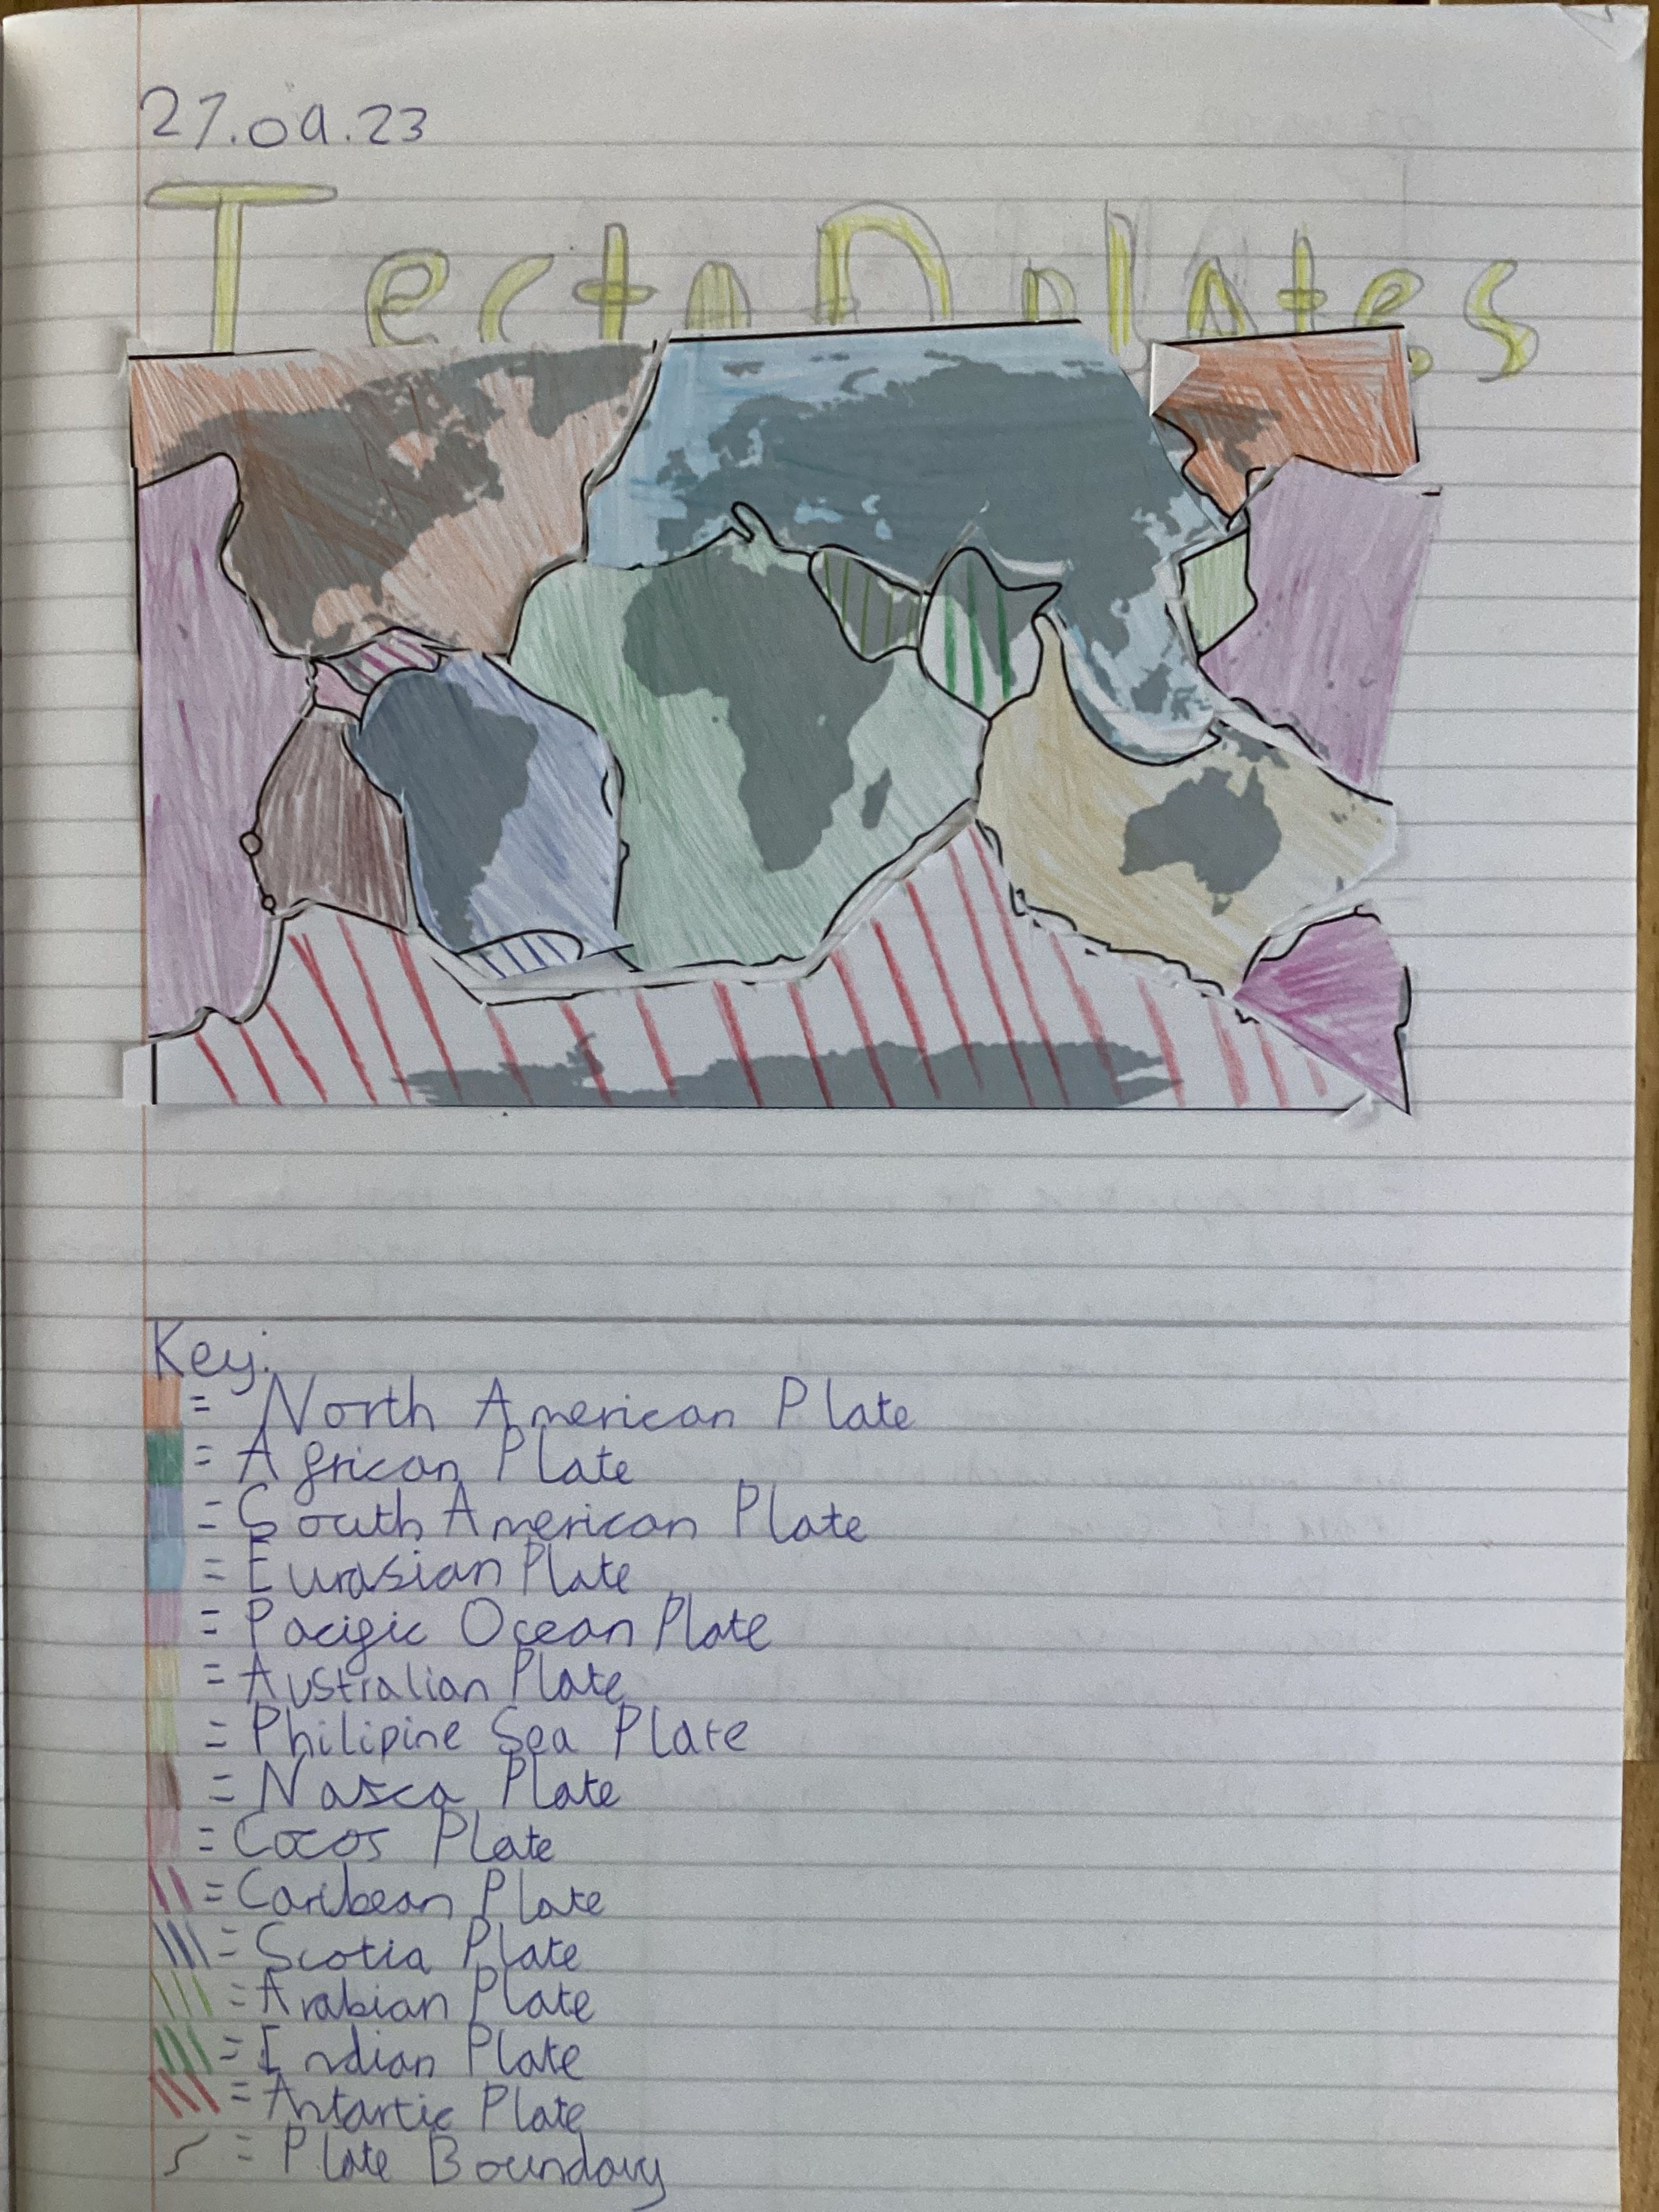 27.09.23
Tecton plates
Key:
= North American Plate
= African Plate
= South American Plate
= Eurasian Plate
= Pacific Ocean Plate
= Australian Plate
= Philipine Sea Plate
= Nasca Plate
= Cocos Plate
= Caribean Plate
= Scotia Plate
= Arabian Plate
= Indian Plate
= Antartic Plate
= Plate Boundary